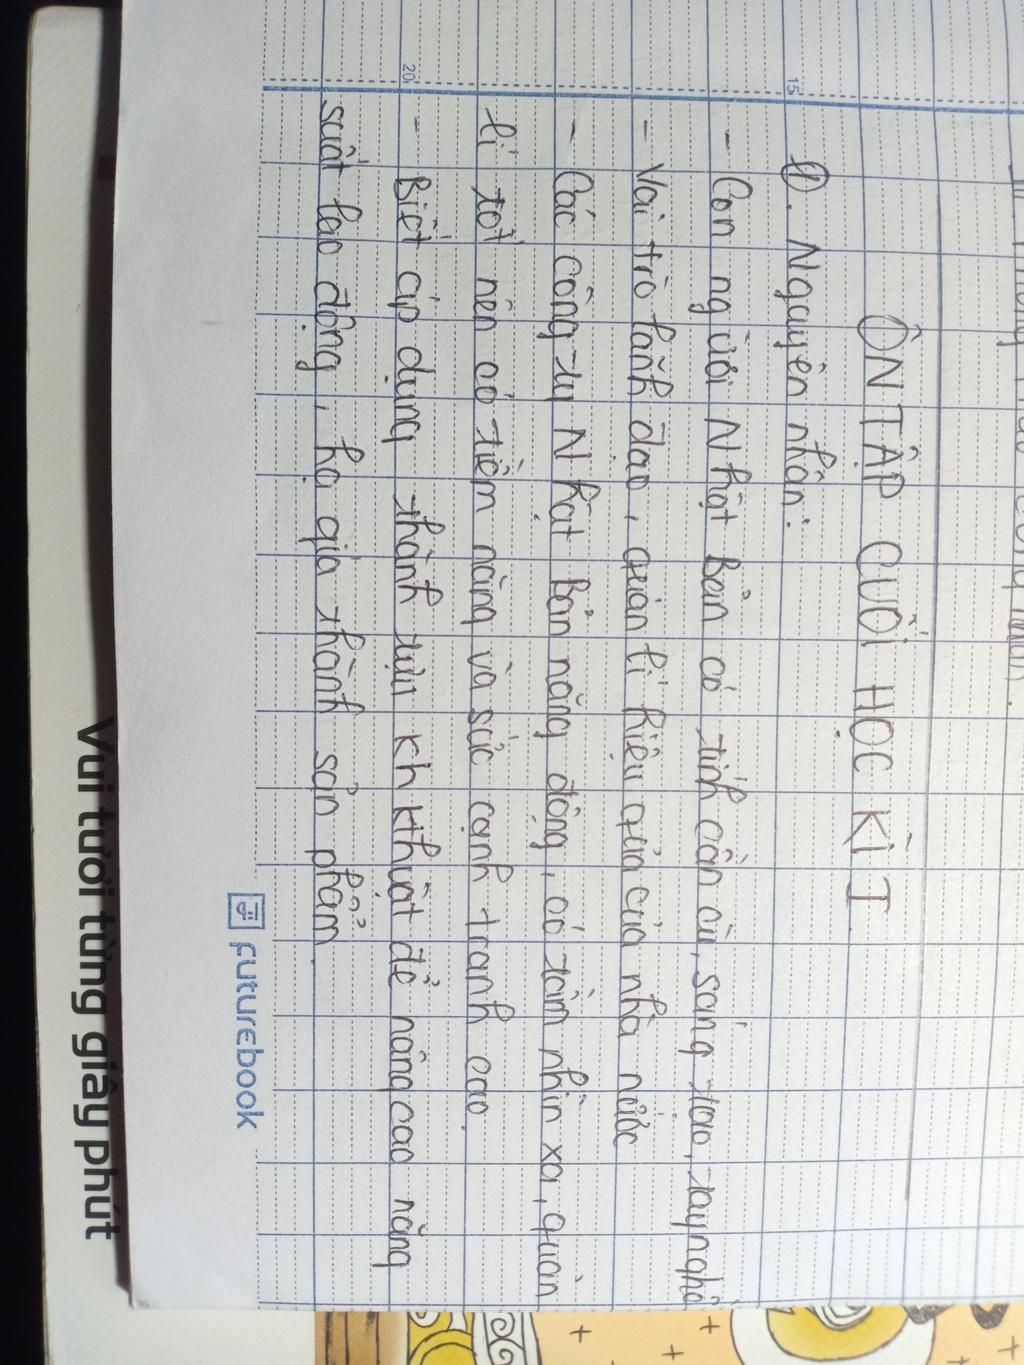 ÔN TẬP CUỐI HỌC KÌ I
①. Nguyên nhân:
- Con người Nhật Bản có tính cần cù, sáng tạo, tay nghề
- Vai trò lãnh đạo, quản lí hiệu quả của nhà nước
- Các công ty Nhật Bản năng động, có tầm nhìn xa, quản
lí tốt nên có tiềm năng và sức cạnh tranh cao.
- Biết áp dụng thành tựu kh kĩ thuật để nâng cao năng
suất lao động, hạ giá thành sản phẩm.
15
20
futurebook
Vui tươi từng giây phút